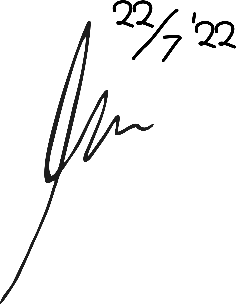 22/7 '22